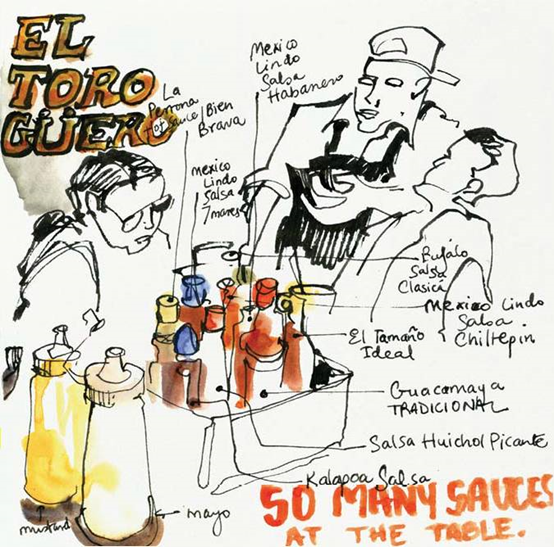 EL
TORO
GÜERO
La
Perrona
Hot Sauce
Bien
Brava
Mexico
Lindo
Salsa
Habanero
Mexico
Lindo
Salsa
7 mares
Bufalo
Salsa
Clasica
Mexico Lindo
Salsa
Chiltepin
El Tamaño
Ideal
Guacamaya
TRADICIONAL
Salsa Huichol Picante
Kalapoa Salsa
SO MANY SAUCES
AT THE TABLE.
mustard
mayo